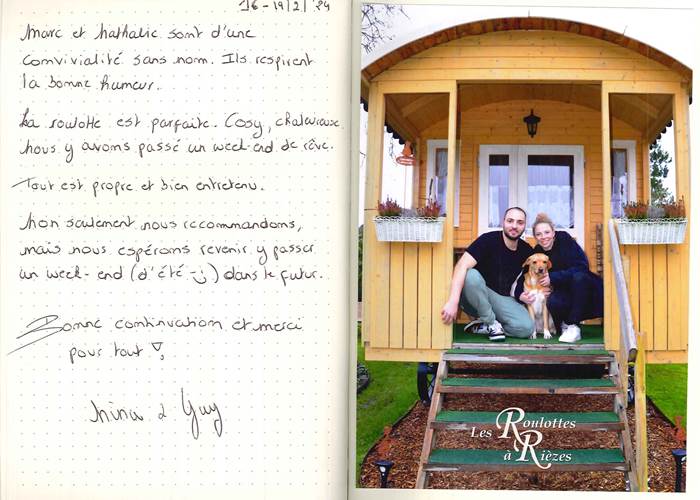 16-19/2/'24
Marc et Nathalie sont d'une
convivialité sans nom. Ils respirent
la bonne humeur.
La roulotte est parfaite. Cosy, chaleureuse.
Nous y avons passé un week-end de rêve.
Tout est propre et bien entretenu.
Non seulement nous recommandons,
mais nous espérons revenir y passer
un week-end (d'été :-)) dans le futur.
Bonne continuation et merci
pour tout ♡,
Nina & Guy
Les Roulottes
à Rièzes